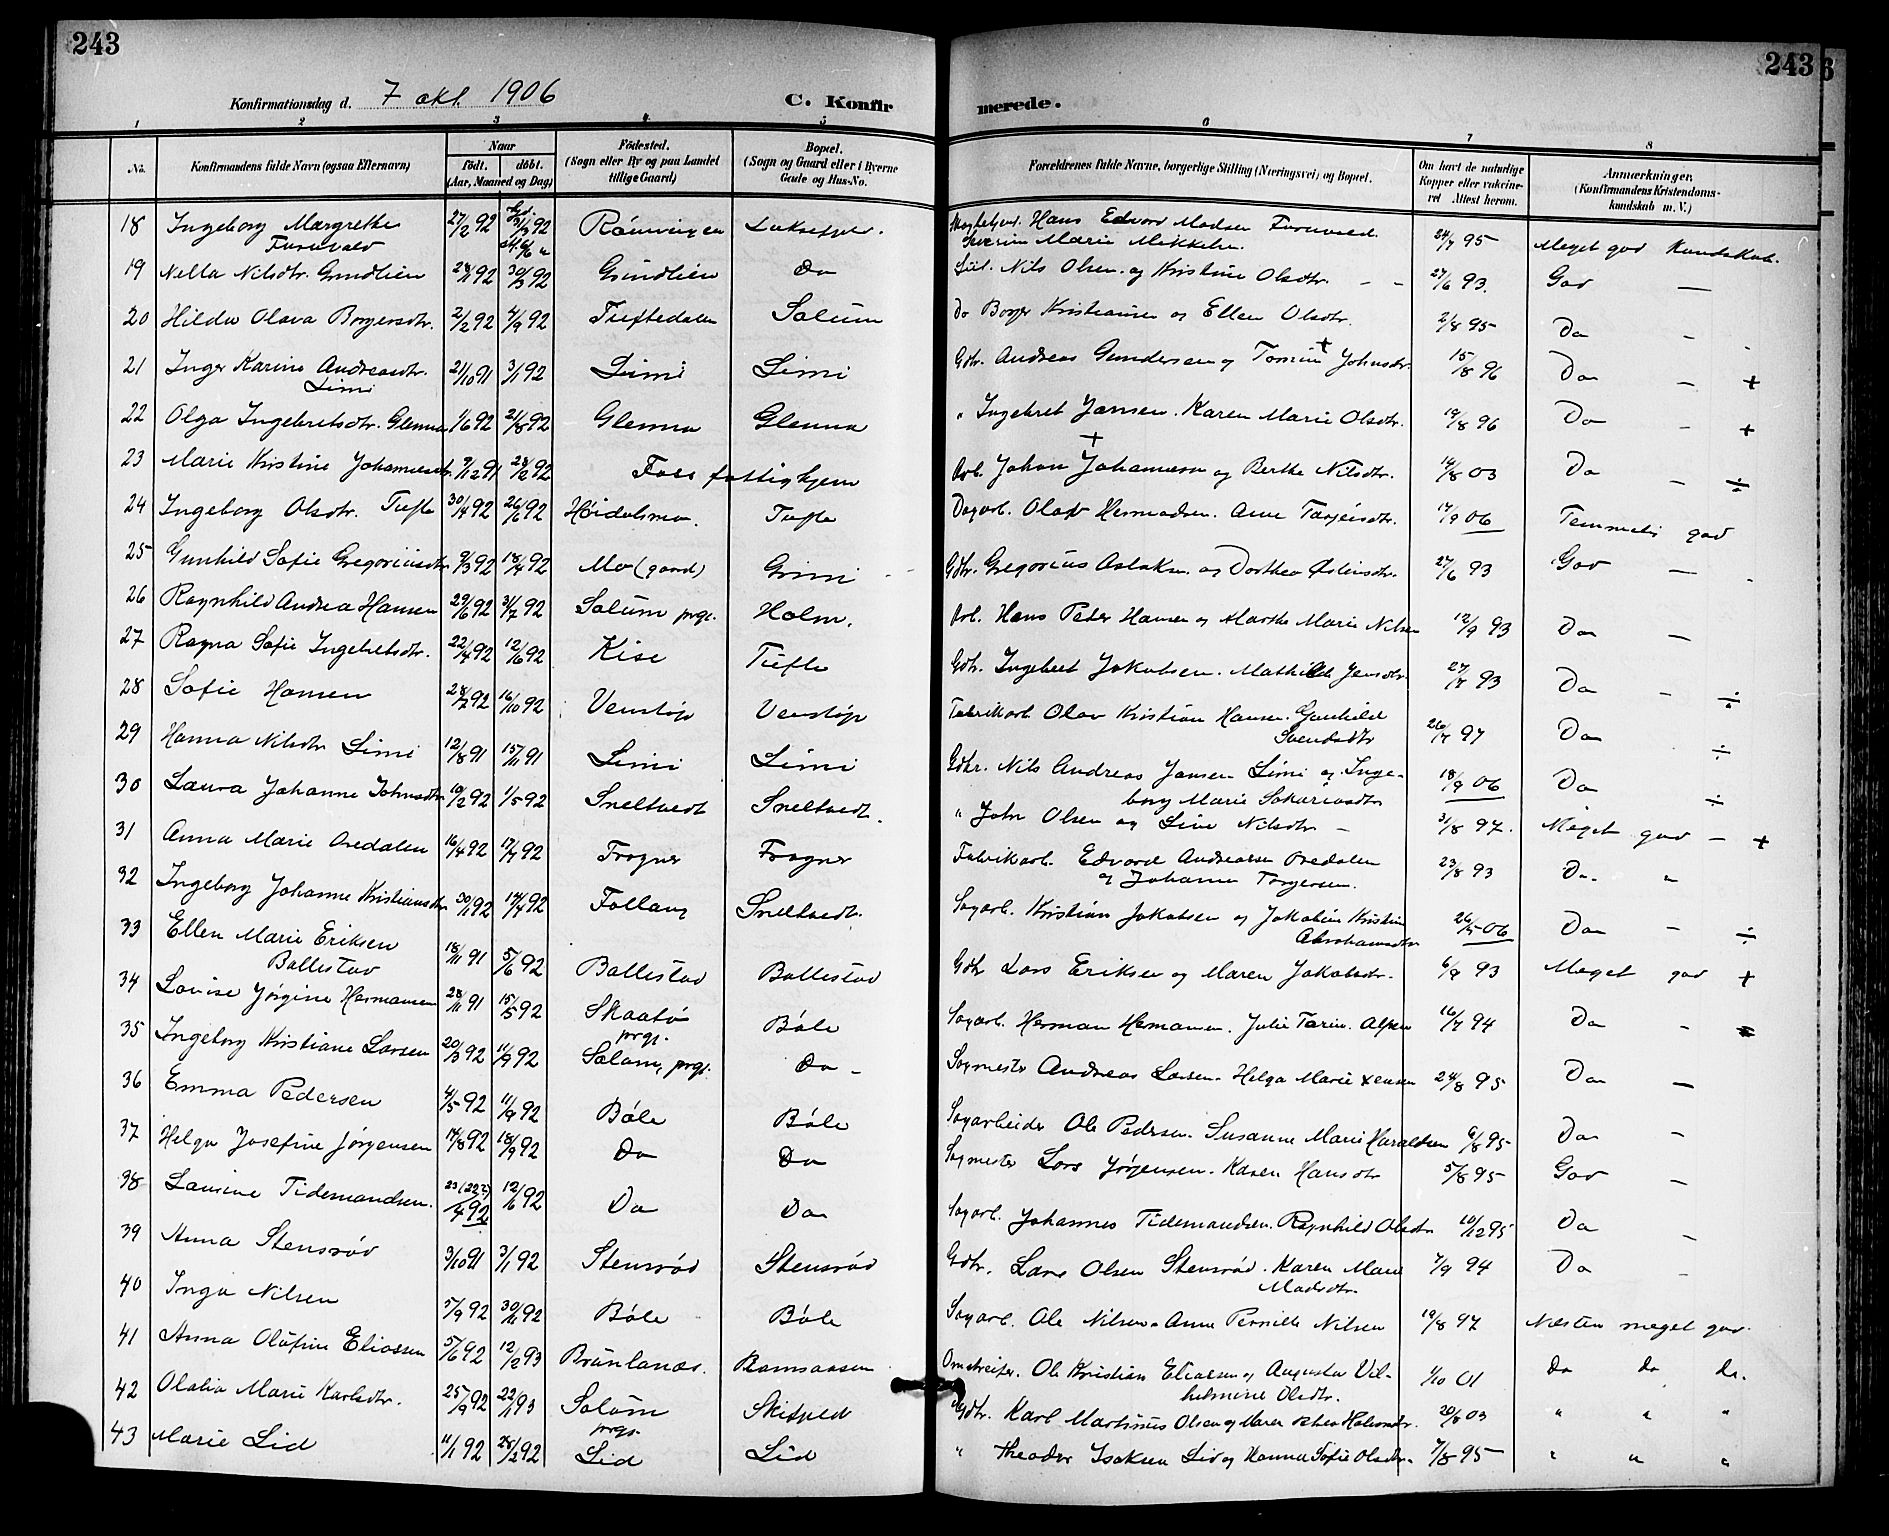 243
243
Konfirmationsdag d. 7 okt. 1906
C. Konfir
merede.
1 2 3 4 5 6 7 8
No.
Konfirmandens fulde Navn (ogsaa Efternavn)
Naar
født. døbt.
(Aar, Maaned og Dag)
Fødested.
(Sogn eller By og paa Landet
tillige Gaard)
Bopæl.
(Sogn og Gaard eller i Byerne
Gade og Hus-No.
Forældrenes fulde Navne, borgerlige Stilling (Næringsvei) og Bopæl.
Om havt de naturlige
Kopper eller vakcine-
ret Attest herom.
Anmærkninger.
(Konfirmandens Kristendoms-
kundskab m. V.)
18 Ingeborg Margrethe 27/2 92 Rønningen Hans Edvard Madsen Furuvald 24/7 95 Meget god Kundskab.
Furuvald Severine Marie Mikkelsen
19 Nella Nilsdtr. Grindlien Grindlien Do Nils Olsen og Kristine Olsdtr. 27/6 93. God —
20 Hilda Olava Borgersdtr. 2/2 92 4/9 92 Tuftedalen Solum Do Borger Kristiansen og Ellen Olsdtr. 2/8 95 Do -
21 Inger Karine Andreasdtr. 21/10 91 3/1 92 Limi Limi Gdbr. Andreas Gundersen og Tomine + Johnsdtr. 15/8 96 Do - +
Limi
22 Olga Ingebretsdtr. Glenna 1/6 92 21/8 92 Glenna Glenna " Ingebret Jansen. Karen Marie Olsdtr. 19/8 96 Do - +
23 Marie Kristine Johannesdtr. 9/12 91 28/2 92 Foss fattighjem Arb. Johan + Johannesen og Berthe Nilsdtr. 14/8 03 Do - ÷
24 Ingeborg Olsdtr. Tufte 30/4 92 26/6 92 Høidalsmo. Tufte Dagarb. Olav Hermodsen. Anne Tarjeisdtr. 17/9 06 Temmelig god
25 Gunhild Sofie Gregoriusdtr. 9/3 92 18/4 92 Mo (gaard) Grini Gdbr. Gregorius Aslaksen og Dorthea Østensdtr. 27/6 93 God —
26 Ragnhild Andrea Hansen 29/6 92 31/7 92 Solum prgj. Holm. Arb. Hans Peder Hansen og Marthe Marie Nilsen 12/9 93 Do —
27 Ragna Sofie Ingebretsdtr. 22/4 92 12/6 92 Kise Tufte Gdbr. Ingebret Jakobsen. Mathilde Jensdtr. 27/7 93 Do - ÷
28 Sofie Hansen 28/7 92 16/10 92 Venstøp Venstøp Fabrikarb. Olav Kristian Hansen. Gunhild 26/7 97 Do ÷
Svendsdtr
29 Hanna Nilsdtr Limi 12/8 91 15/11 91 Limi Limi Gdbr. Nils Andreas Jansen Limi og Inge- 18/9 06 Do ÷
borg Marie Sakariasdtr
30 Laura Johanne Johnsdtr 10/2 92 1/5 92 Sneltvedt Sneltvedt. " John Olsen og Line Nilsdtr - 31/8 97. Meget god - +
31 Anna Marie Aredalen 16/4 92 17/7 92 Frogner Frogner Fabrikarb. Edvard Andreassen Aredalen 23/8 93 Do. "
og Johanne Torgersen.
32 Ingeborg Johanne Kristiansdtr 30/1 92 17/4 92 Follaug Sneltvedt. Sagarb. Kristian Jakobsen og Jakobine Kristine 26/5 06 Do - ÷
Abrahamsdtr
33 Ellen Marie Eriksen 18/11 91 5/6 92 Ballestad Ballestad Gdbr Lars Eriksen og Maren Jakobsdtr. 6/9 93 Meget god +
Ballestad
34 Lovise Jørgine Hermansen 28/11 91 15/5 92 Skaatø Bøle Sagarb. Herman Hermansen. Julie Tarine. Alfsen 16/7 94 Do -
prgj.
35 Ingeborg Kristiane Larsen 20/3 92 11/9 92 Solum, prgj. Do - Sagmester Andreas Larsen. Helga Marie Jensen 24/8 95 Do —
36 Emma Pedersen 4/5 92 11/9 92 Bøle Bøle Sagarbeider Ole Pedersen. Susanne Marie Haraldsen 6/8 95 Do -
37 Helga Josefine Jørgensen 14/8 92 18/9 92 Do Do Sagmester Lars Jørgensen. Karen Hansdtr 5/8 95 God -
38 Laurine Tidemandsen. 23 (22?)/4 92 12/6 92 Do Do Sagarb. Johannes Tidemandsen. Ragnhild Olsdtr 10/12 95 Do -
39 Anna Stensrød 3/10 91 3/1 92 Stensrød Stensrød Gdbr. Lars Olsen Stensrød. Karen Marie 7/9 94 Do -
Madsdtr.
40 Inga Nilsen 5/9 92 30/11 92 Bøle Bøle Sagarb. Ole Nilsen. Anne Pernille Nilsen 19/8 97 Næsten meget god.
41 Anna Olufine Eliassen 5/6 92 12/2 93 Brunlanæs. Ramsaasen Omstreifer. Ole Kristian Eliassen og Augusta Vil- 1/10 01 do do do.
helmine Olsdtr.
42 Olalia Marie Karlsdtr. 25/9 92 22/1 93 Solum Skifjeld Gdbr. Karl Martinius Olsen og Maren Halvorsdtr. 20/8 03 " " "
prgj.
43 Marie Lid 11/1 92 28/2 92 Lid Lid " Theodor Isaksen Lid og Hanna Sofie Olsdtr. 7/8 95 " " "